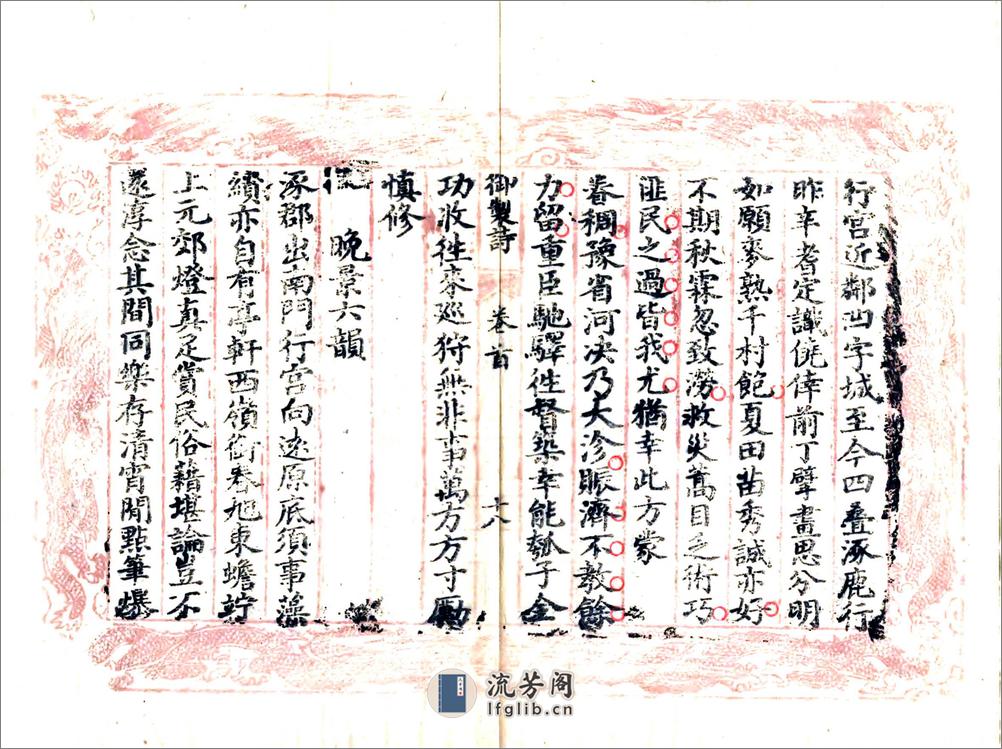 行宮近鄰凹字城至今四叠涿鹿行
昨年耆定識僥倖前丁擘畫思分明
如願麥熟千村飽夏田苗秀誠亦好
不期秋霖忽致澇救災蒿目乏術巧
匪民之過皆我尤猶幸此方蒙
眷稠豫省河决乃大沴賑濟不教餘
力留重臣馳驛徃督築幸能瓠子金
御製詩 卷首 十八
功收徃來巡狩無非事萬方方寸勵
慎修
晚景六韻
涿郡出南門行宮向逺原底須事藻
繢亦自有亭軒西嶺銜春旭東蟾竚
上元郊燈真足賞民俗藉堪論豈不
還淳念其間同樂存清宵閒點筆爆
流芳阁
lfglib.cn